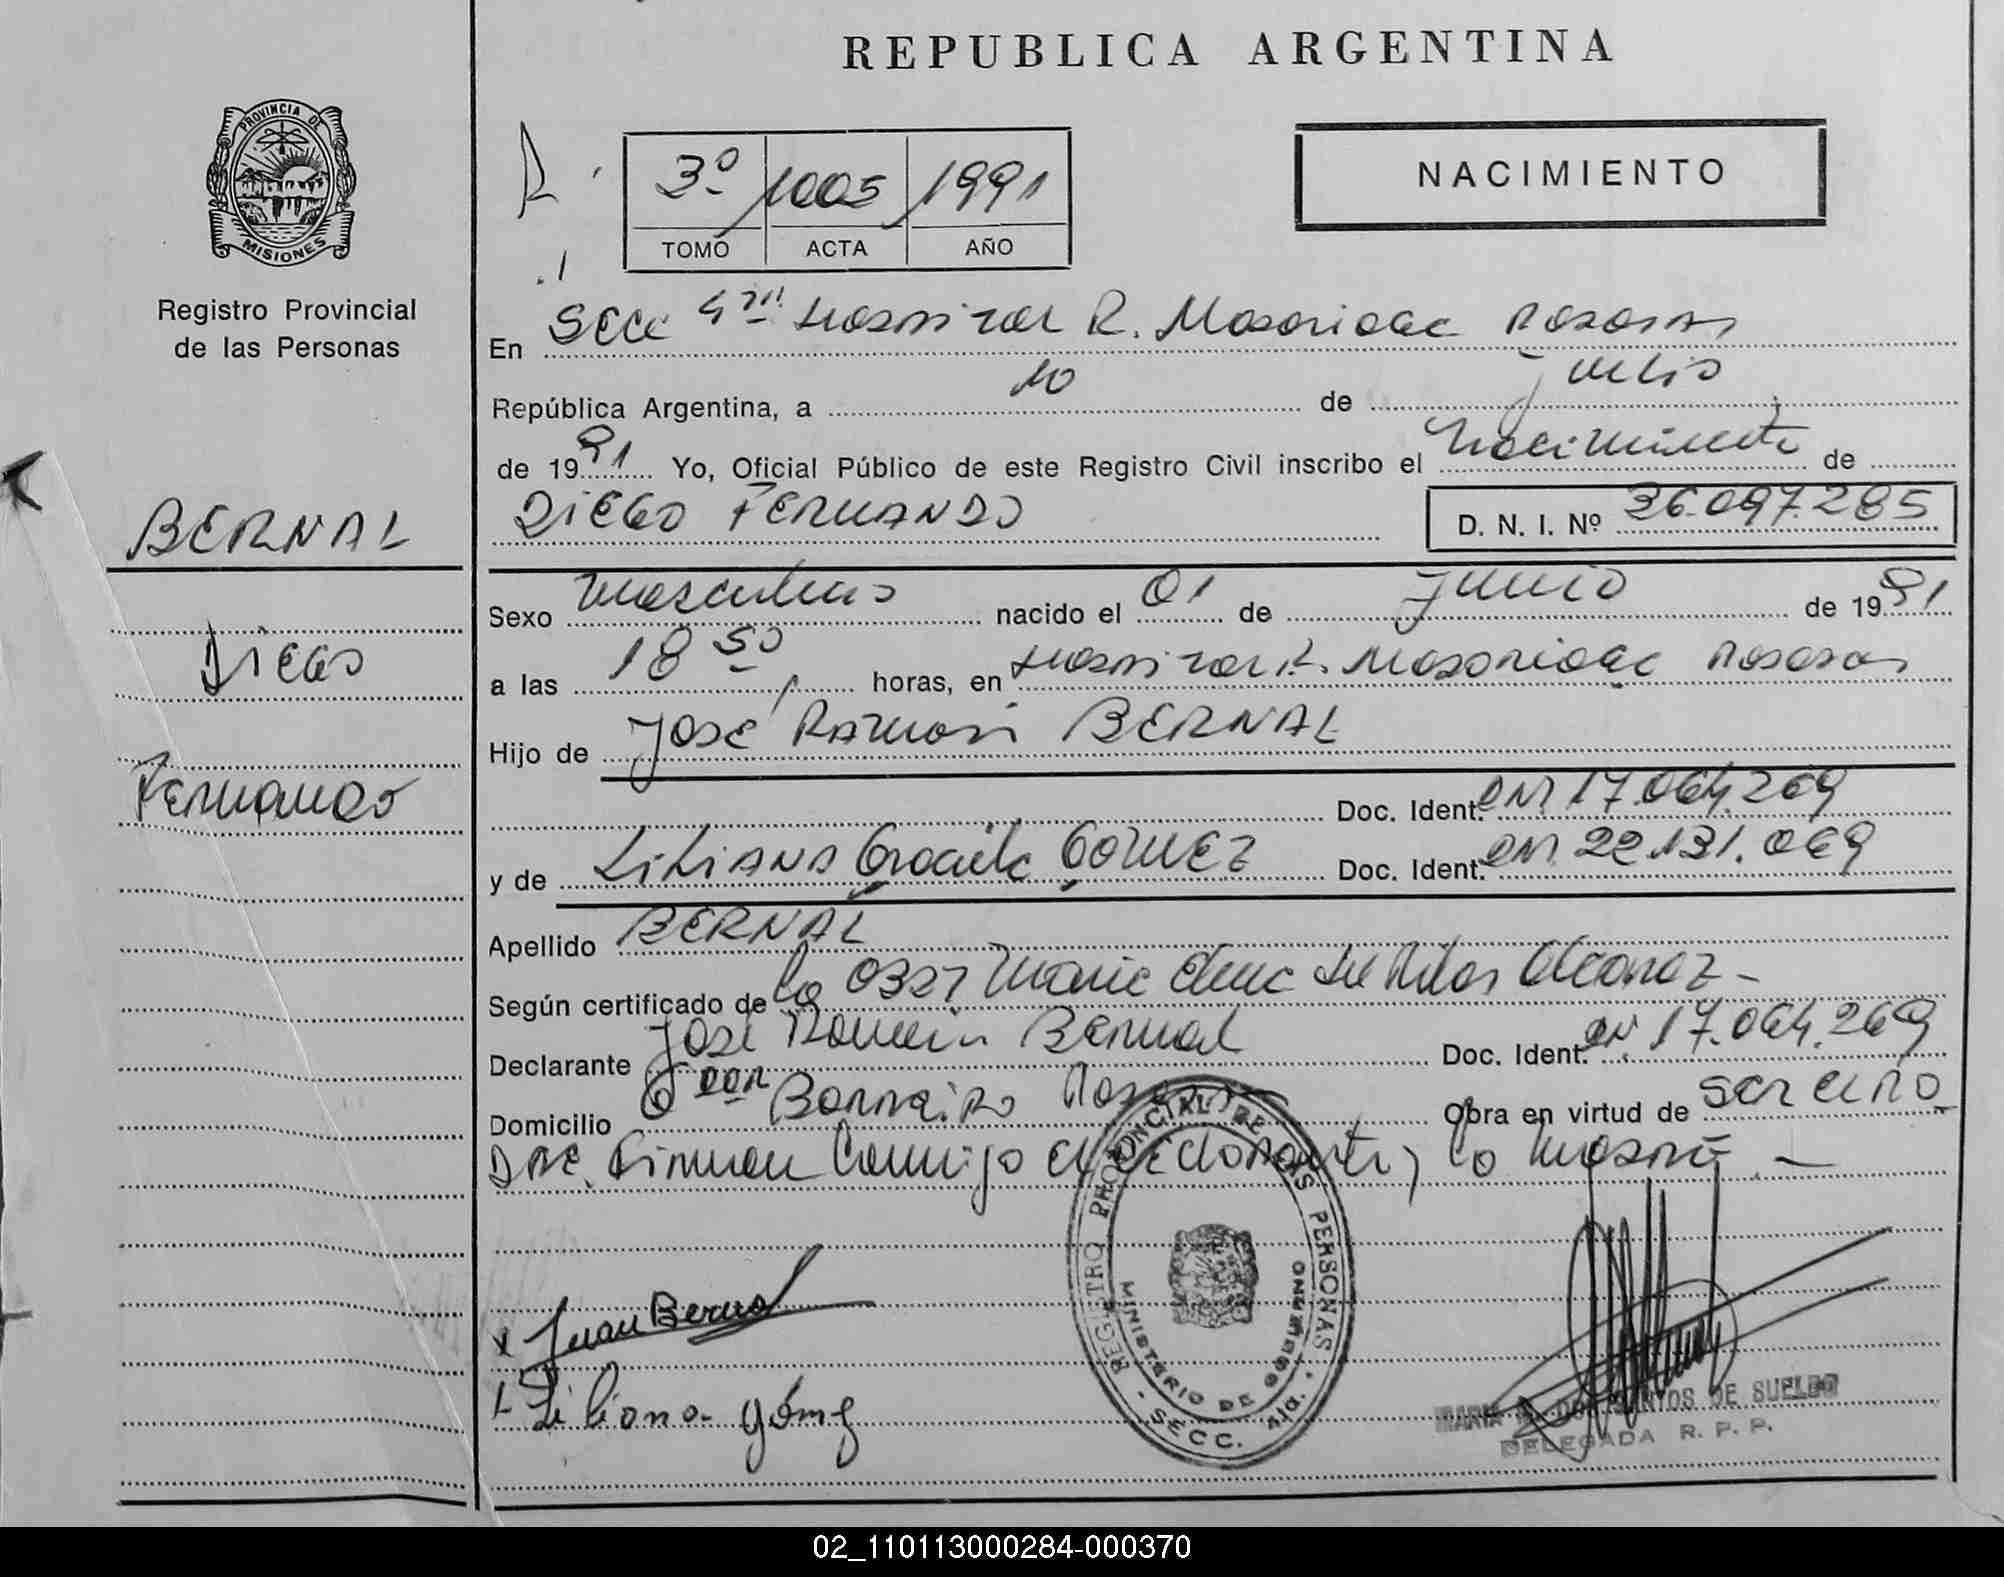 REPUBLICA ARGENTINA
PROVINCIA DE
MISIONES
Registro Provincial
de las Personas
3º 1005 1991
TOMO ACTA AÑO
NACIMIENTO
En Secc 4ta Hospital R. Madariaga Posadas
República Argentina, a 10 de Julio
de 1991 Yo, Oficial Público de este Registro Civil inscribo el Nacimiento de
DIEGO FERNANDO D. N. I. Nº 36.097.285
BERNAL
Diego
Fernando
Sexo Masculino nacido el 01 de Junio de 1991
a las 18 50 horas, en Hospital R. Madariaga Posadas
Hijo de José Ramón BERNAL
Doc. Ident. DNI 17.064.269
y de LILIANA Graciela GOMEZ Doc. Ident. DNI 22.131.069
Apellido BERNAL
Según certificado de la Obst Maria Elena
Declarante José Ramón Bernal Doc. Ident. DNI 17.064.269
Domicilio Barrio Posadas Obra en virtud de ser el PA
DRE. Firman Conmigo el declarante y la madre. —
x Juan Bernal
Liliana Gómez
REGISTRO PROVINCIAL DE LAS PERSONAS
MINISTERIO DE GOBIERNO
SECC. 4ta.
MARIA DOS SANTOS DE SUELDO
DELEGADA R. P. P.
02_110113000284-000370